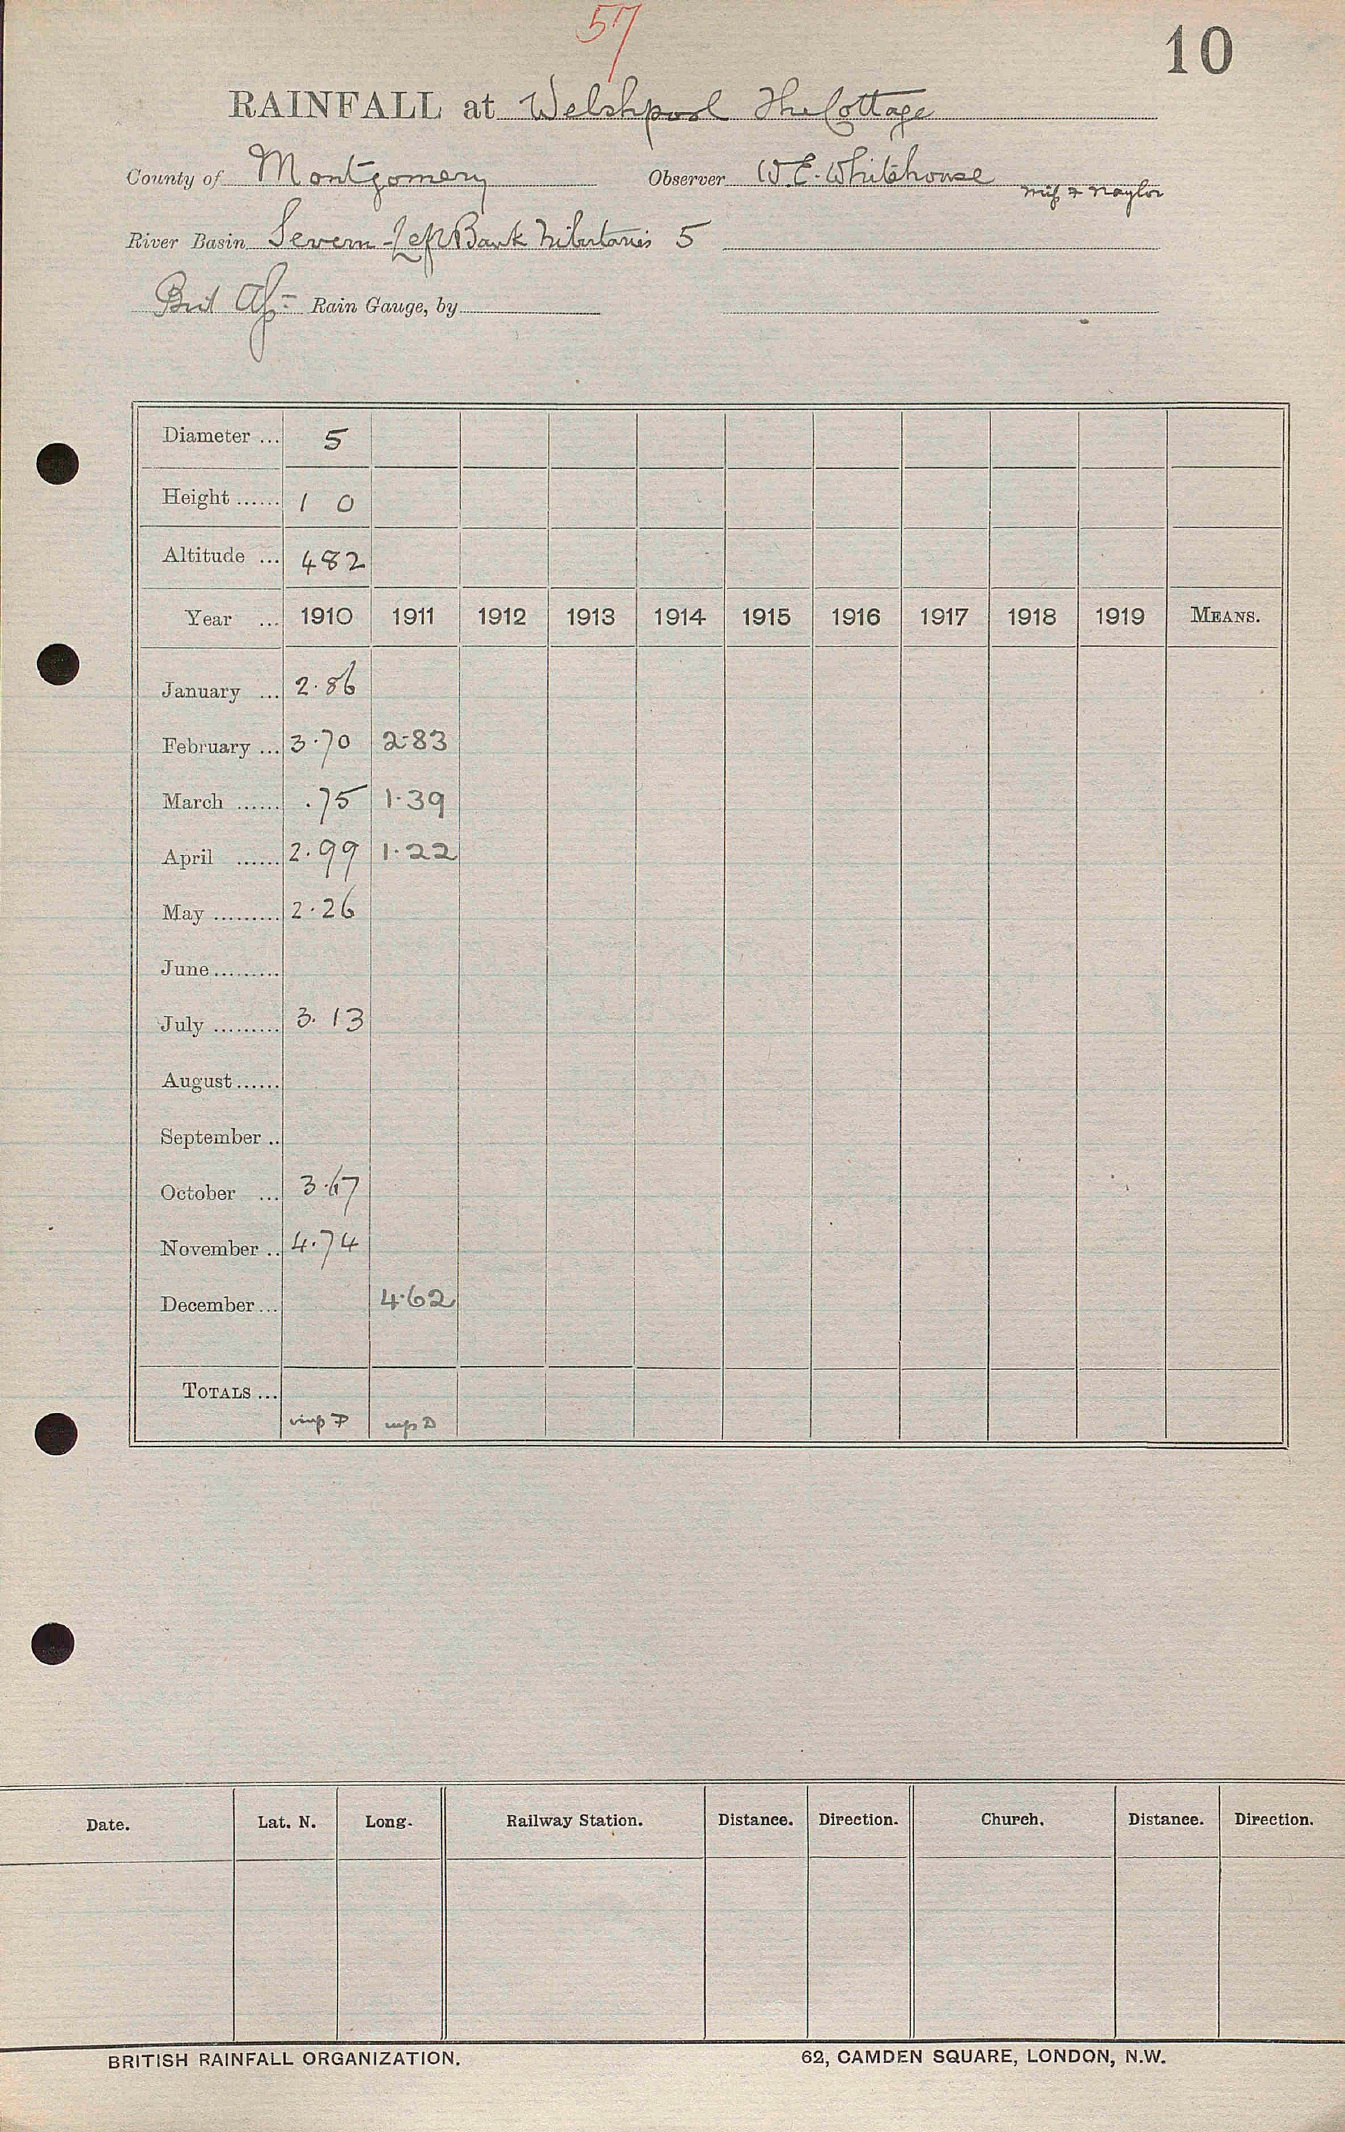 57
10
RAINFALL at Welshpool The Cottage
County of Montgomery Observer W.E. Whitehouse
Naylor
River Basin Severn - Left Bank Tributaries 5
Rain Gauge, by
Diameter ... 5
Height ...... 1 0
Altitude ... 482
Year ... 1910 1911 1912 1913 1914 1915 1916 1917 1918 1919 MEANS.
January ... 2.86
February ... 3.70 2.83
March ...... .75 1.39
April ...... 2.99 1.22
May ......... 2.26
June.........
July ......... 3.13
August......
September ..
October ... 3.67
November .. 4.74
December... 4.62
TOTALS ...
Date. Lat. N. Long. Railway Station. Distance. Direction. Church. Distance. Direction.
BRITISH RAINFALL ORGANIZATION. 62, CAMDEN SQUARE, LONDON, N.W.